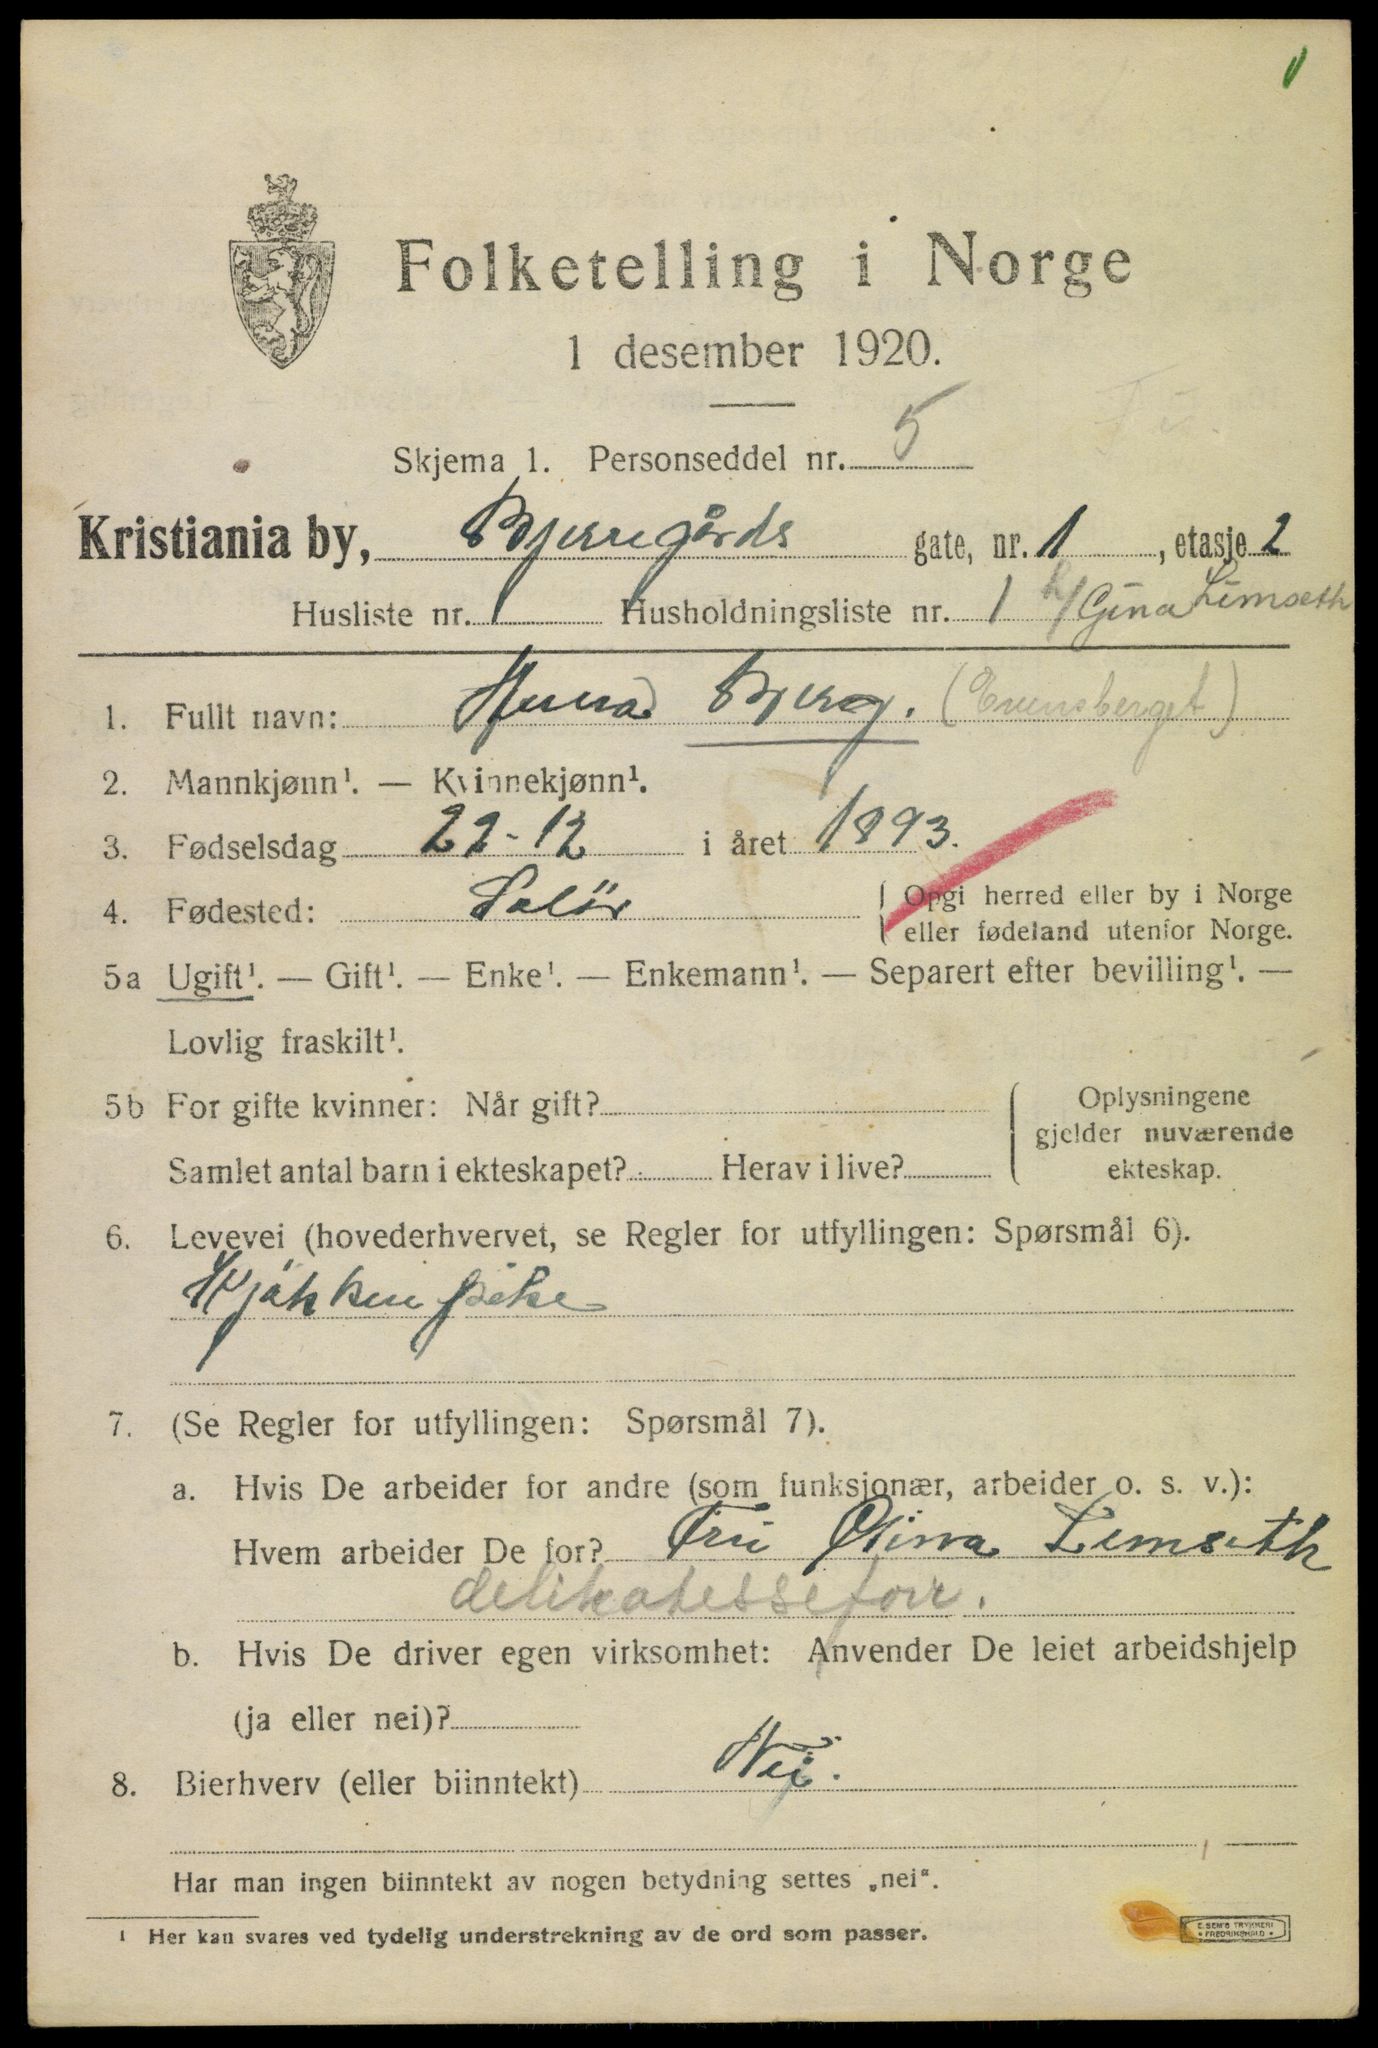 Folketelling i Norge
1 desember 1920.
Skjema 1. Personseddel nr. 5
Kristiania by, Bjerregårds gate, nr. 1, etasje 2
Husliste nr. 1 Husholdningsliste nr. 1 h/Gina Limseth
1. Fullt navn: Bjerg. (Evensberget)
2. Mannkjønn¹. — Kvinnekjønn¹.
3. Fødselsdag 22-12 i året 1893.
4. Fødested: Solör { Opgi herred eller by i Norge
eller fødeland utenfor Norge.
5a Ugift¹. — Gift¹. — Enke¹. — Enkemann¹. — Separert efter bevilling¹. —
Lovlig fraskilt¹.
5b For gifte kvinner: Når gift? { Oplysningene
gjelder nuværende
Samlet antal barn i ekteskapet? Herav i live? ekteskap.
6. Levevei (hovederhvervet, se Regler for utfyllingen: Spørsmål 6).
Kjökkenpike
7. (Se Regler for utfyllingen: Spørsmål 7).
a. Hvis De arbeider for andre (som funksjonær, arbeider o. s. v.):
Hvem arbeider De for? Fru Gina Limseth
delikatesseforr.
b. Hvis De driver egen virksomhet: Anvender De leiet arbeidshjelp
(ja eller nei)?
8. Bierhverv (eller biinntekt) Nej.
Har man ingen biinntekt av nogen betydning settes „nei“.
¹ Her kan svares ved tydelig understrekning av de ord som passer.
E. SEM'S TRYKKERI
• FREDRIKSHALD •